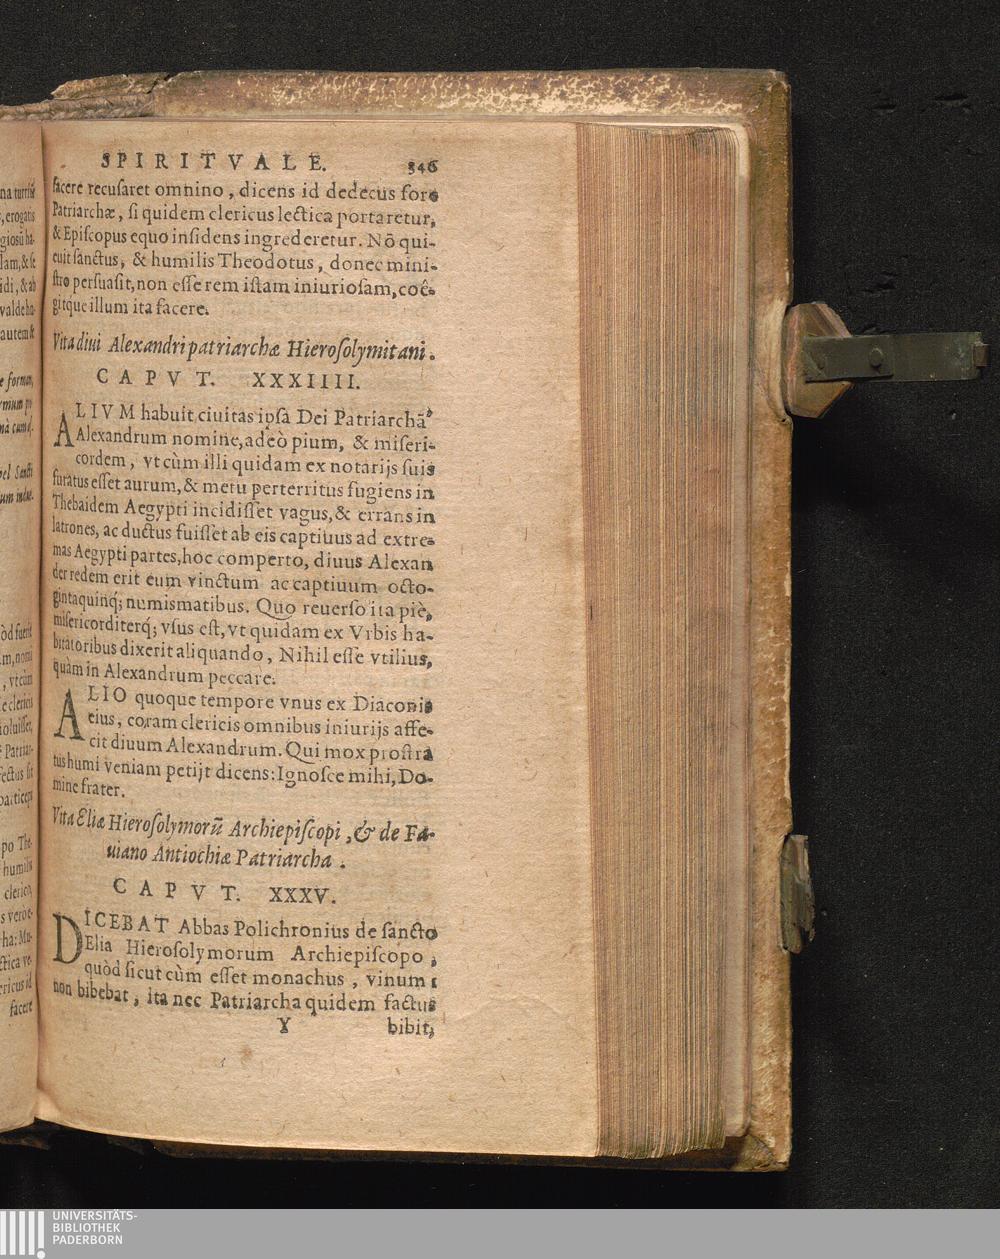 SPIRITVALE. 346
facere recuſaret omnino, dicens id dedecus fore
Patriarchæ, ſi quidem clericus lectica portaretur,
& Epiſcopus equo inſidens ingrederetur. Nõ qui-
euit ſanctus, & humilis Theodotus, donec mini-
ſtro perſuaſit, non eſſe rem iſtam iniurioſam, coê-
gitque illum ita facere.
Vita diui Alexandri patriarchæ Hieroſolymitani.
CAPVT. XXXIIII.
ALIVM habuit ciuitas ipſa Dei Patriarchã
Alexandrum nomine, adeò pium, & miſeri-
cordem, vt cùm illi quidam ex notarijs ſuis
furatus eſſet aurum, & metu perterritus fugiens in
Thebaidem Aegypti incidiſſet vagus, & errans in
latrones, ac ductus fuiſſet ab eis captiuus ad extre-
mas Aegypti partes, hoc comperto, diuus Alexan
der redem erit eum vinctum ac captiuum octo-
gintaquinq; numismatibus. Quo reuerſo ita piè,
miſericorditerq́; vſus eſt, vt quidam ex Vrbis ha-
bitatoribus dixerit aliquando, Nihil eſſe vtilius,
quàm in Alexandrum peccare.
ALIO quoque tempore vnus ex Diaconis
eius, coram clericis omnibus iniurijs affe-
cit diuum Alexandrum. Qui mox proſtra
tus humi veniam petijt dicens: Ignoſce mihi, Do-
mine frater.
Vita Eliæ Hieroſolymorũ Archiepiſcopi, & de Fa-
uiano Antiochiæ Patriarcha.
CAPVT. XXXV.
DICEBAT Abbas Polichronius de ſancto
Elia Hieroſolymorum Archiepiſcopo,
quòd ſicut cùm eſſet monachus, vinum
non bibebat, ita nec Patriarcha quidem factus
Y bibit,
facere
UNIVERSITÄTS-
BIBLIOTHEK
PADERBORN